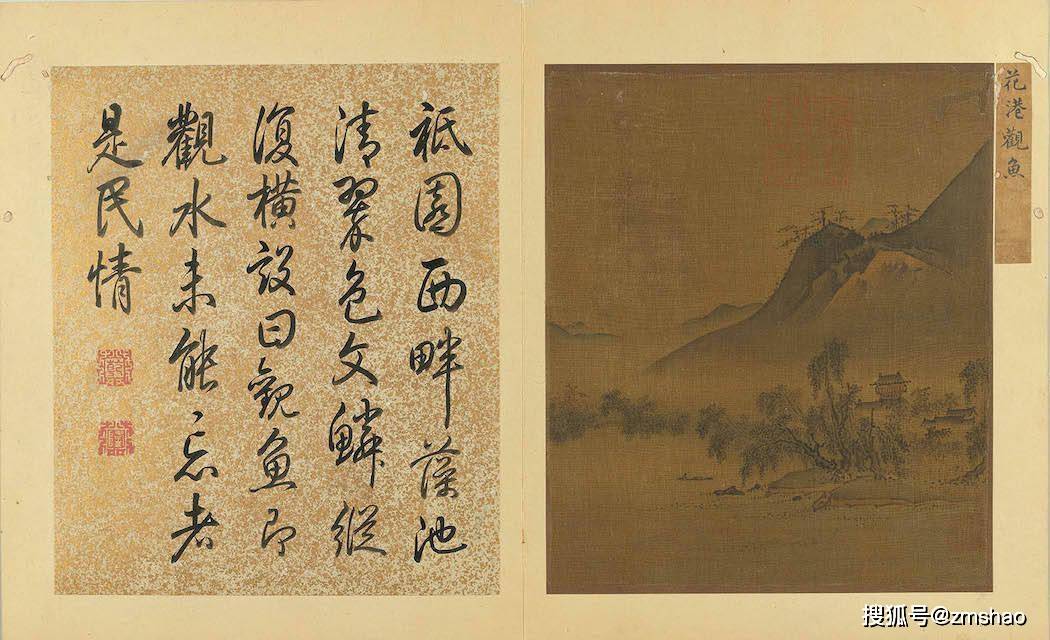 花港觀魚
祇園西畔藻池
清翠色文鱗縱
復橫設曰觀魚即
觀水未能忘者
是民情
搜狐号@zmshao